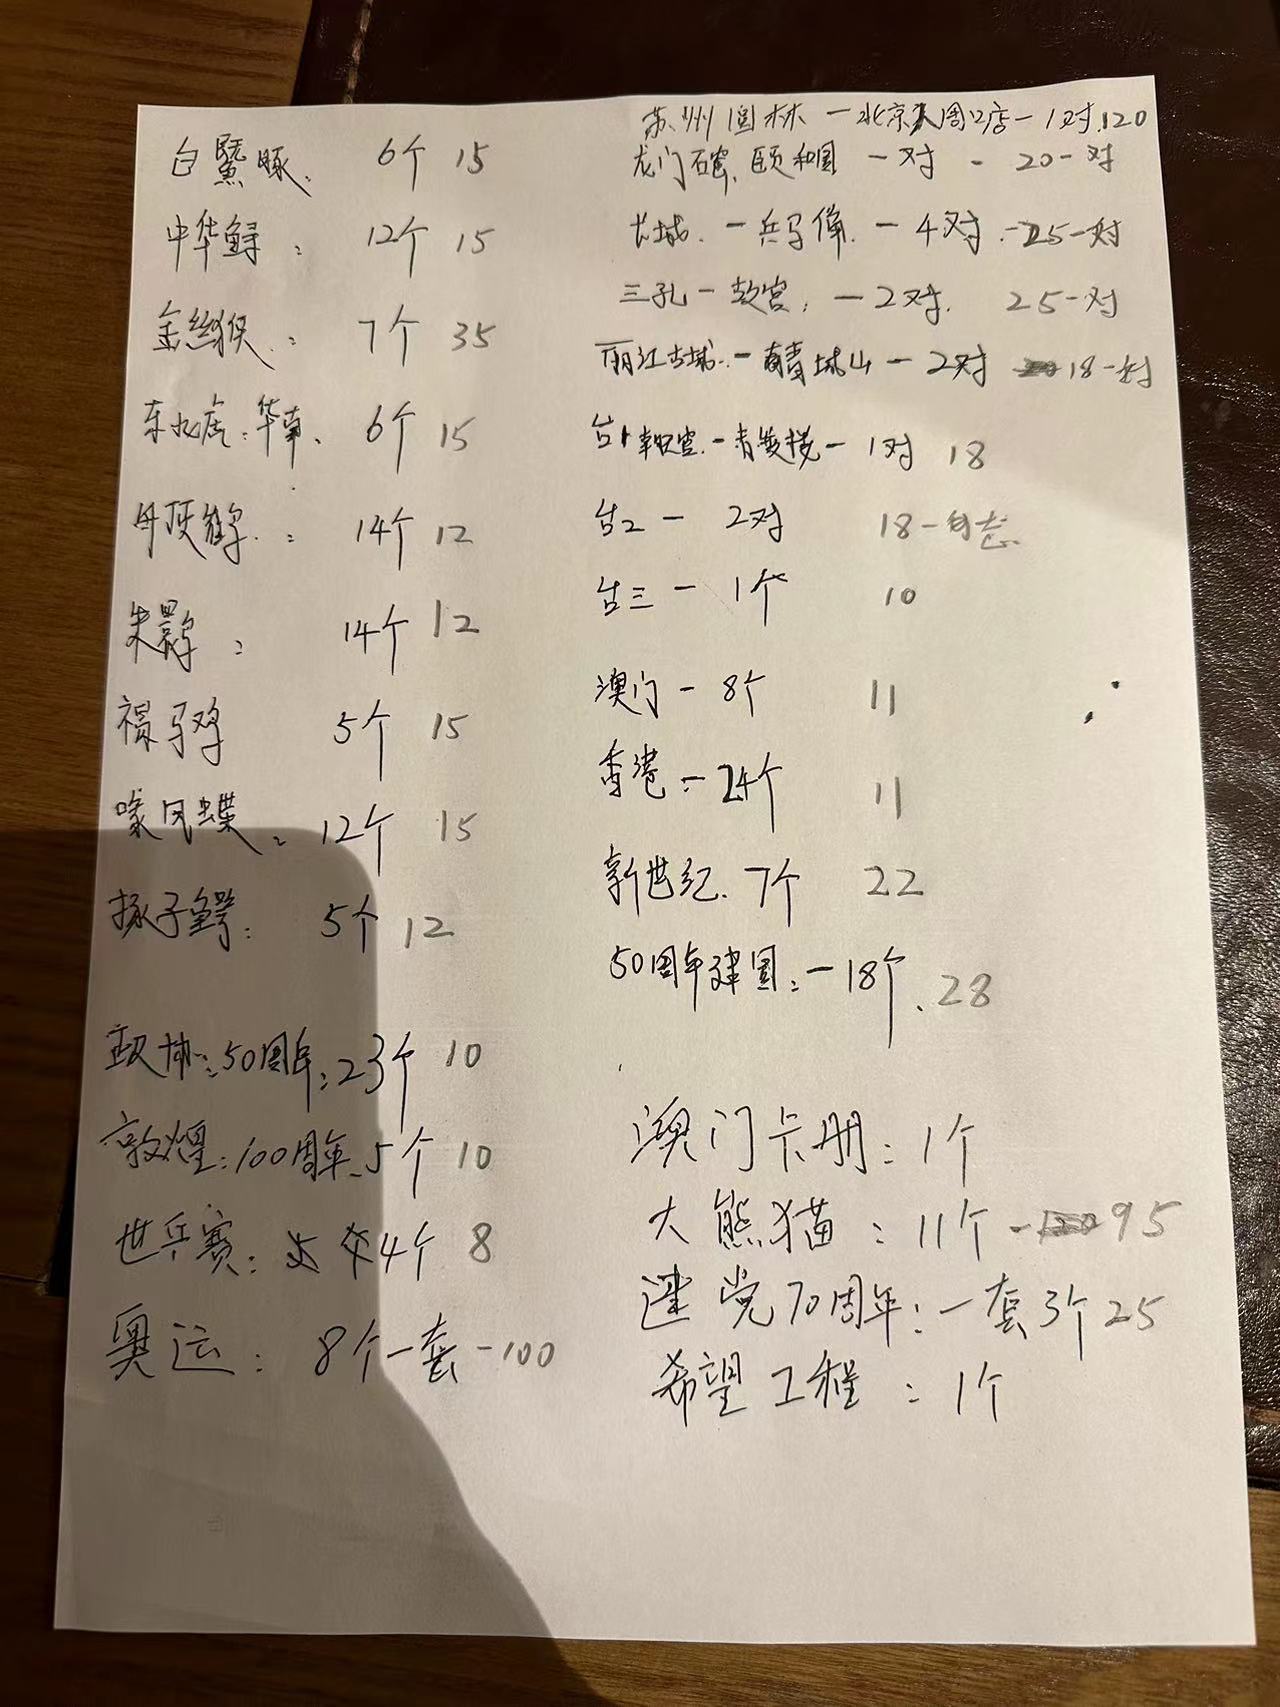 白鱀豚. 6个 15
中华鲟: 12个 15
金丝猴: 7个 35
东北虎: 华南、 6个 15
丹顶鹤: 14个 12
朱鹮: 14个 12
褐马鸡 5个 15
喙凤蝶: 12个 15
扬子鳄: 5个 12
政协: 50周年: 23个 10
敦煌: 100周年、5个 10
世乒赛: 4个 8
奥运: 8个一套-100
苏州园林 — 北京人周口店 — 1对.120
龙门石窟、颐和园 一对 - 20一对
长城. — 兵马俑. — 4对. 25一对
三孔 — 故宫. — 2对. 25一对
丽江古城. — 青城山 — 2对 18一对
台1 朝天宫. — 赤嵌楼 — 1对 18
台2 — 2对 18
台三 — 1个 10
澳门 — 8个 11
香港: — 24个 11
新世纪. 7个 22
50周年建国: — 18个. 28
澳门卡册: 1个
大熊猫: 11个 - 95
建党70周年: 一套3个 25
希望工程: 1个